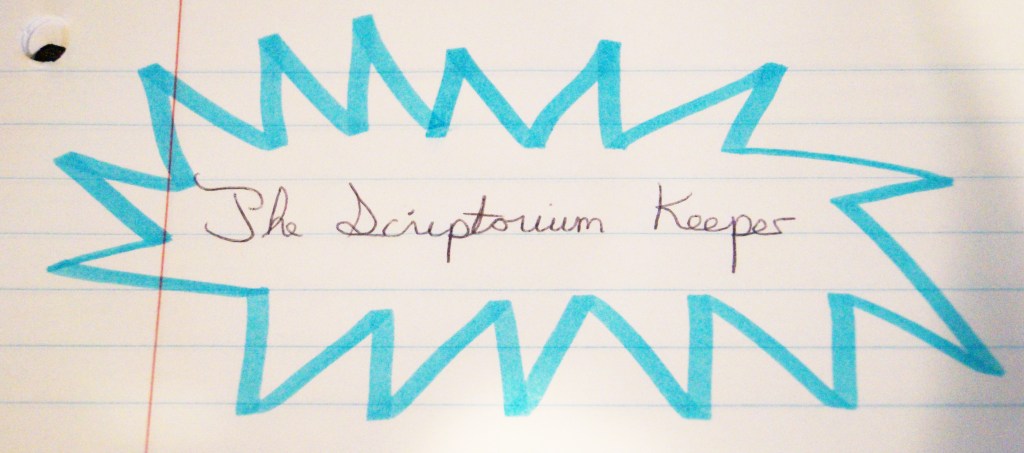 The Scriptorium Keeper